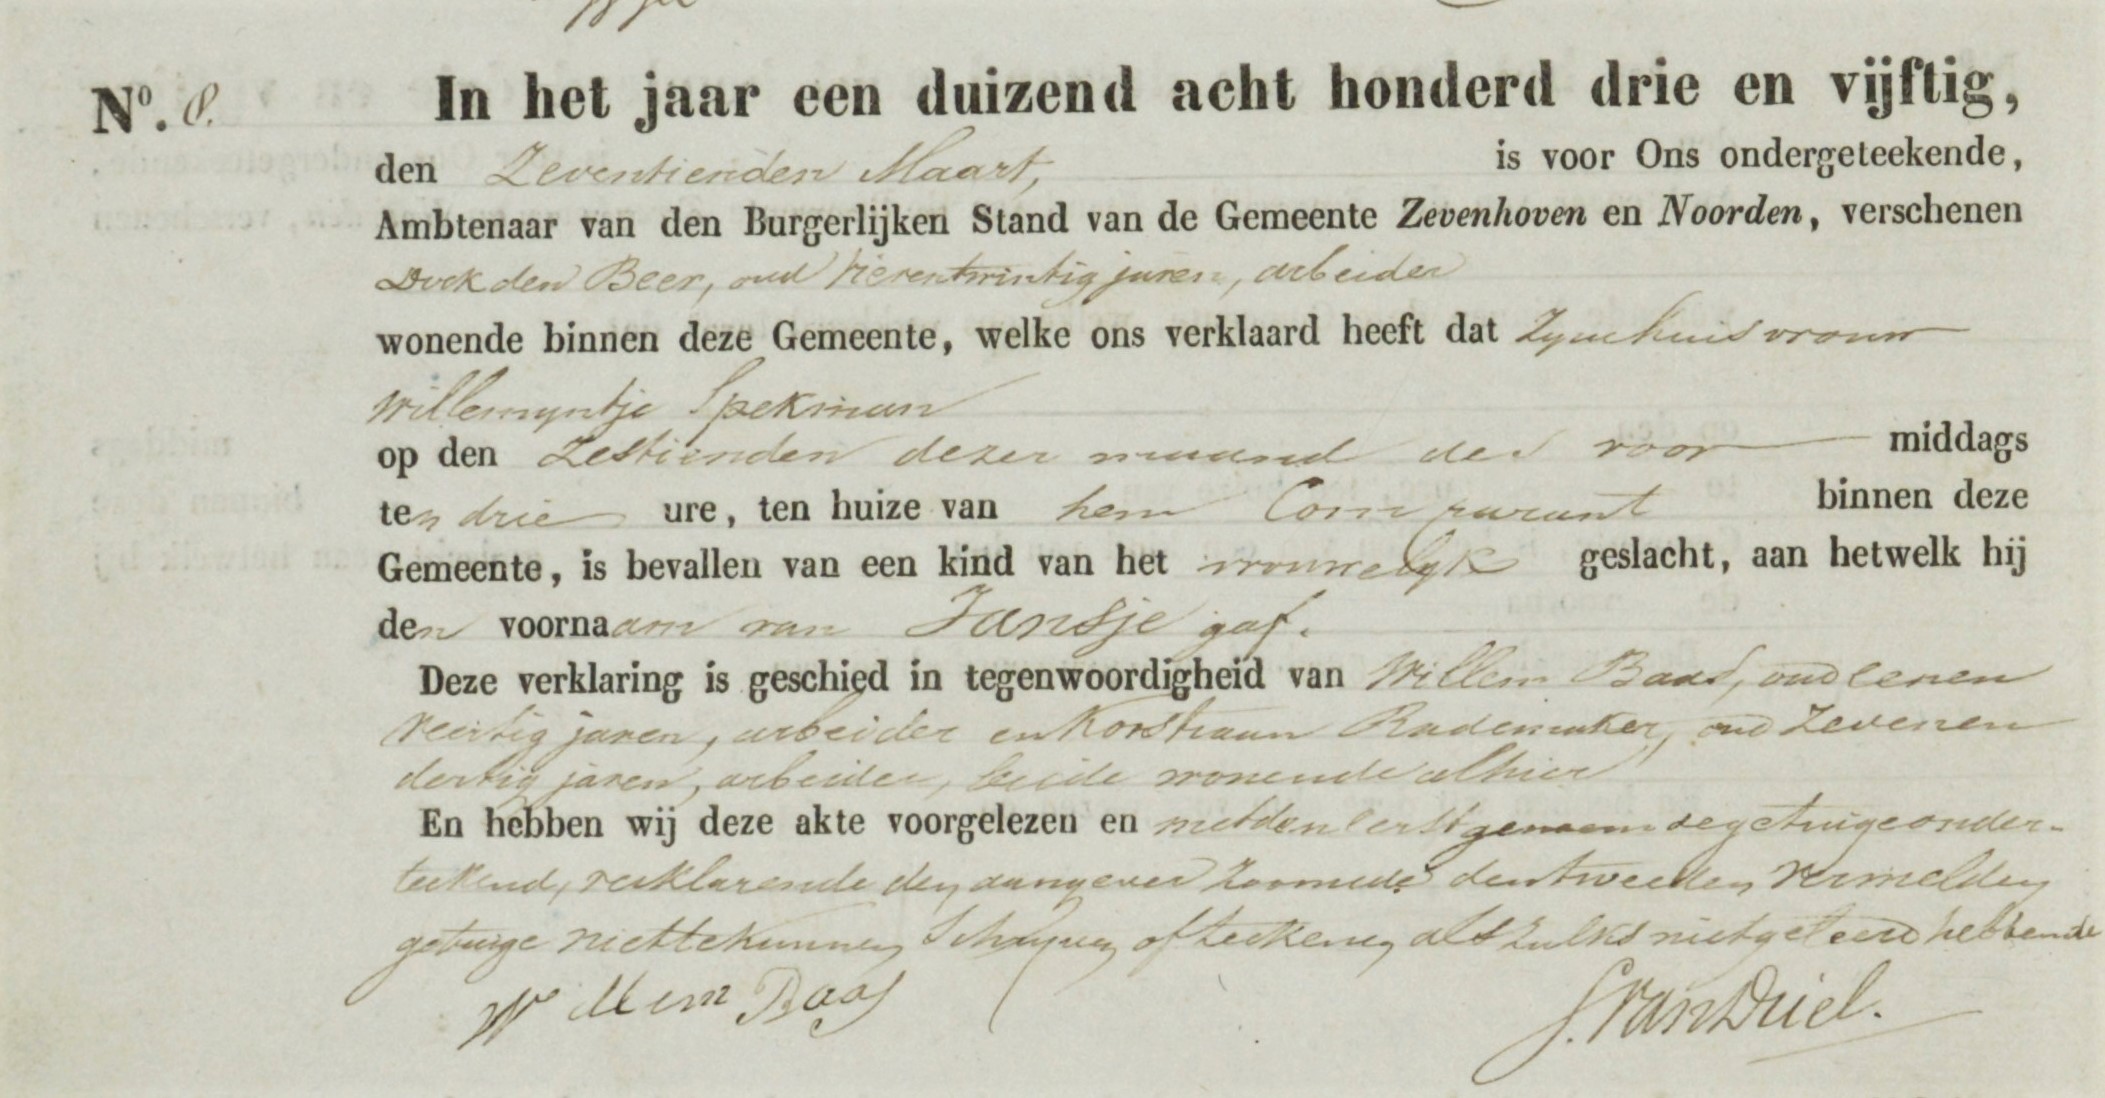 No. 8. In het jaar een duizend acht honderd drie en vijftig,
den Zeventienden Maart, is voor Ons ondergeteekende,
Ambtenaar van den Burgerlijken Stand van de Gemeente Zevenhoven en Noorden, verschenen
den Beer, oud vierentwintig jaren, arbeider
wonende binnen deze Gemeente, welke ons verklaard heeft dat Zyne huisvrouw
Willemyntje Spekman
op den Zestienden dezer maand des voor middags
ten drie ure, ten huize van hem Comparant binnen deze
Gemeente, is bevallen van een kind van het vrouwelyk geslacht, aan hetwelk hij
den voornaam van Jansje gaf.
Deze verklaring is geschied in tegenwoordigheid van Willem Baas, oud eenen
veertig jaren, arbeider en Korstiaan Rademaker, oud Zevenen
dertig jaren, arbeider, beide wonende alhier
En hebben wij deze akte voorgelezen en met den eerstgenoemde getuige onder-
teekend, verklarende den aangever Zoomede den tweeden vermelden
getuige niet te kunnen Schryven of teekenen als Zulks niet geleerd hebbende
Willem Baas S. van Driel.